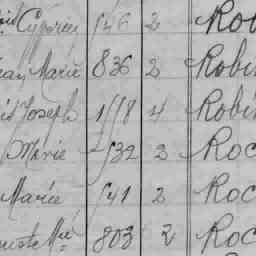 Cyprien 546 2 Rob
Jean Marie 836 2 Robi
Joseph 1518 4 Robi
Marie 532 2 Roc
Marie 541 2 Roc
Mie 803 2 Roc